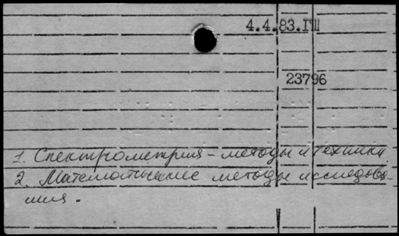 4.4.83.ГШ
23796
1. Спектрометрия - методы и техника
2. Математические методы исследова-
ния.